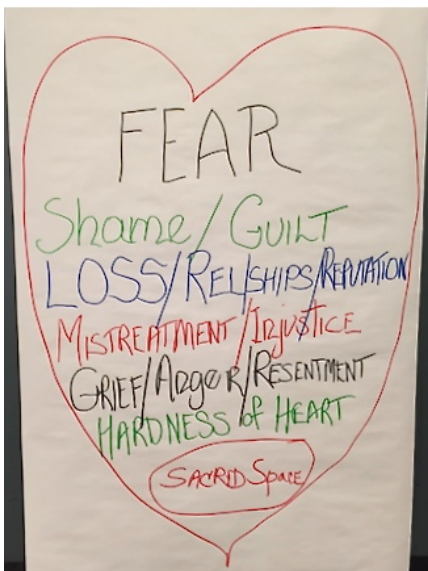 FEAR
Shame/GUILT
LOSS/RELSHIPS/REPUTATION
MISTREATMENT/INJUSTICE
GRIEF/ANGER/RESENTMENT
HARDNESS of HEART
SACRED Space